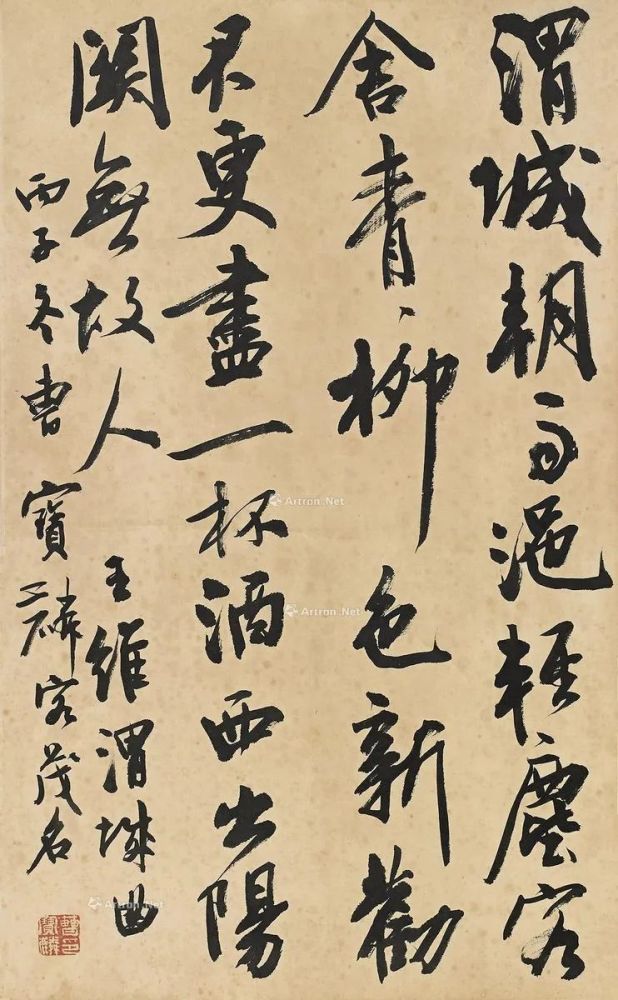 渭城朝雨浥輕塵客
舍青〻柳色新勸
君更盡一杯酒西出陽
關無故人
王維渭城曲
丙子冬曹寶麟客茂名
曹寶麟印
Artron.Net
Artron.Net
Artron.Net